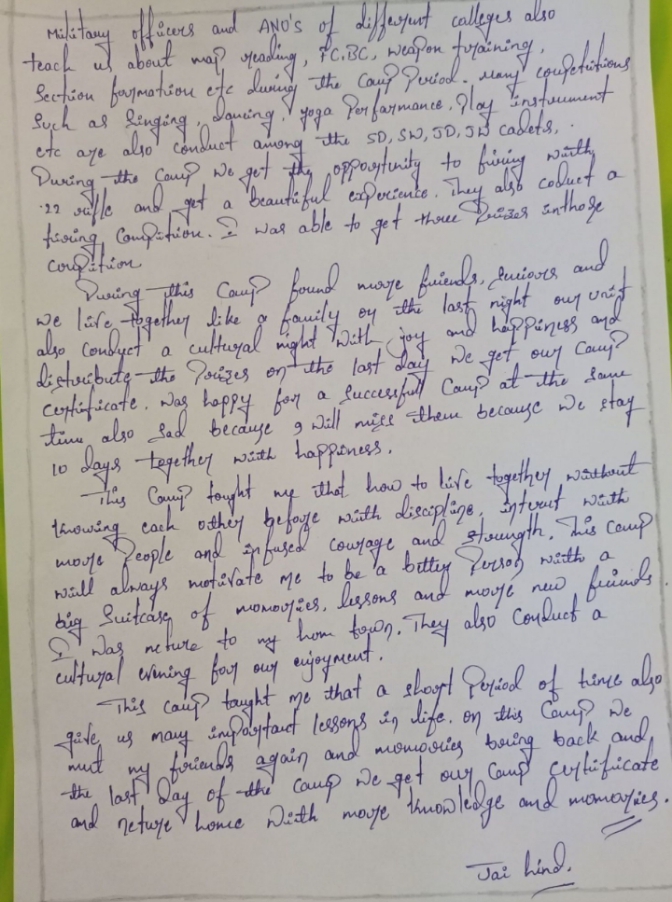 Military officers and ANO'S of different colleges also
teach us about map reading, FC.BC, weapon training,
Section formation etc during the Camp Period. Many competitions
Such as Singing, dancing, yoga Performance, Play instrument
etc are also conduct among the SD, SW, JD, JW cadets.
During the Camp we get the opportunity to firing with
.22 rifle and get a beautiful experience. They also coduct a
firing Compition. I was able to get three Prizes inthose
copition
During this Camp found more friends, seniors and
we live together like a family on the last night our unit
also conduct a cultural night with joy and happiness and
distribute the Prizes on the last day we get our Camp
certificate. was happy for a successfull Camp at the same
time also sad because I will miss them because we stay
10 days together with happiness.
This Camp tought me that how to live together without
knowing each other before with discipline, interut with
more People and infused courage and strength. This camp
will always motivate me to be a better Person with a
big Suitcase of momories, lessons and more new friends.
I was neture to my hom town. They also conduct a
cultural evening for our enjoyment.
This camp taught me that a short Period of time also
give us many important lessons in life. on this Camp we
mut my friends again and momories bring back and
the last day of the camp we get our camp certificate
and neture home with more knowledge and momories.
Jai hind.